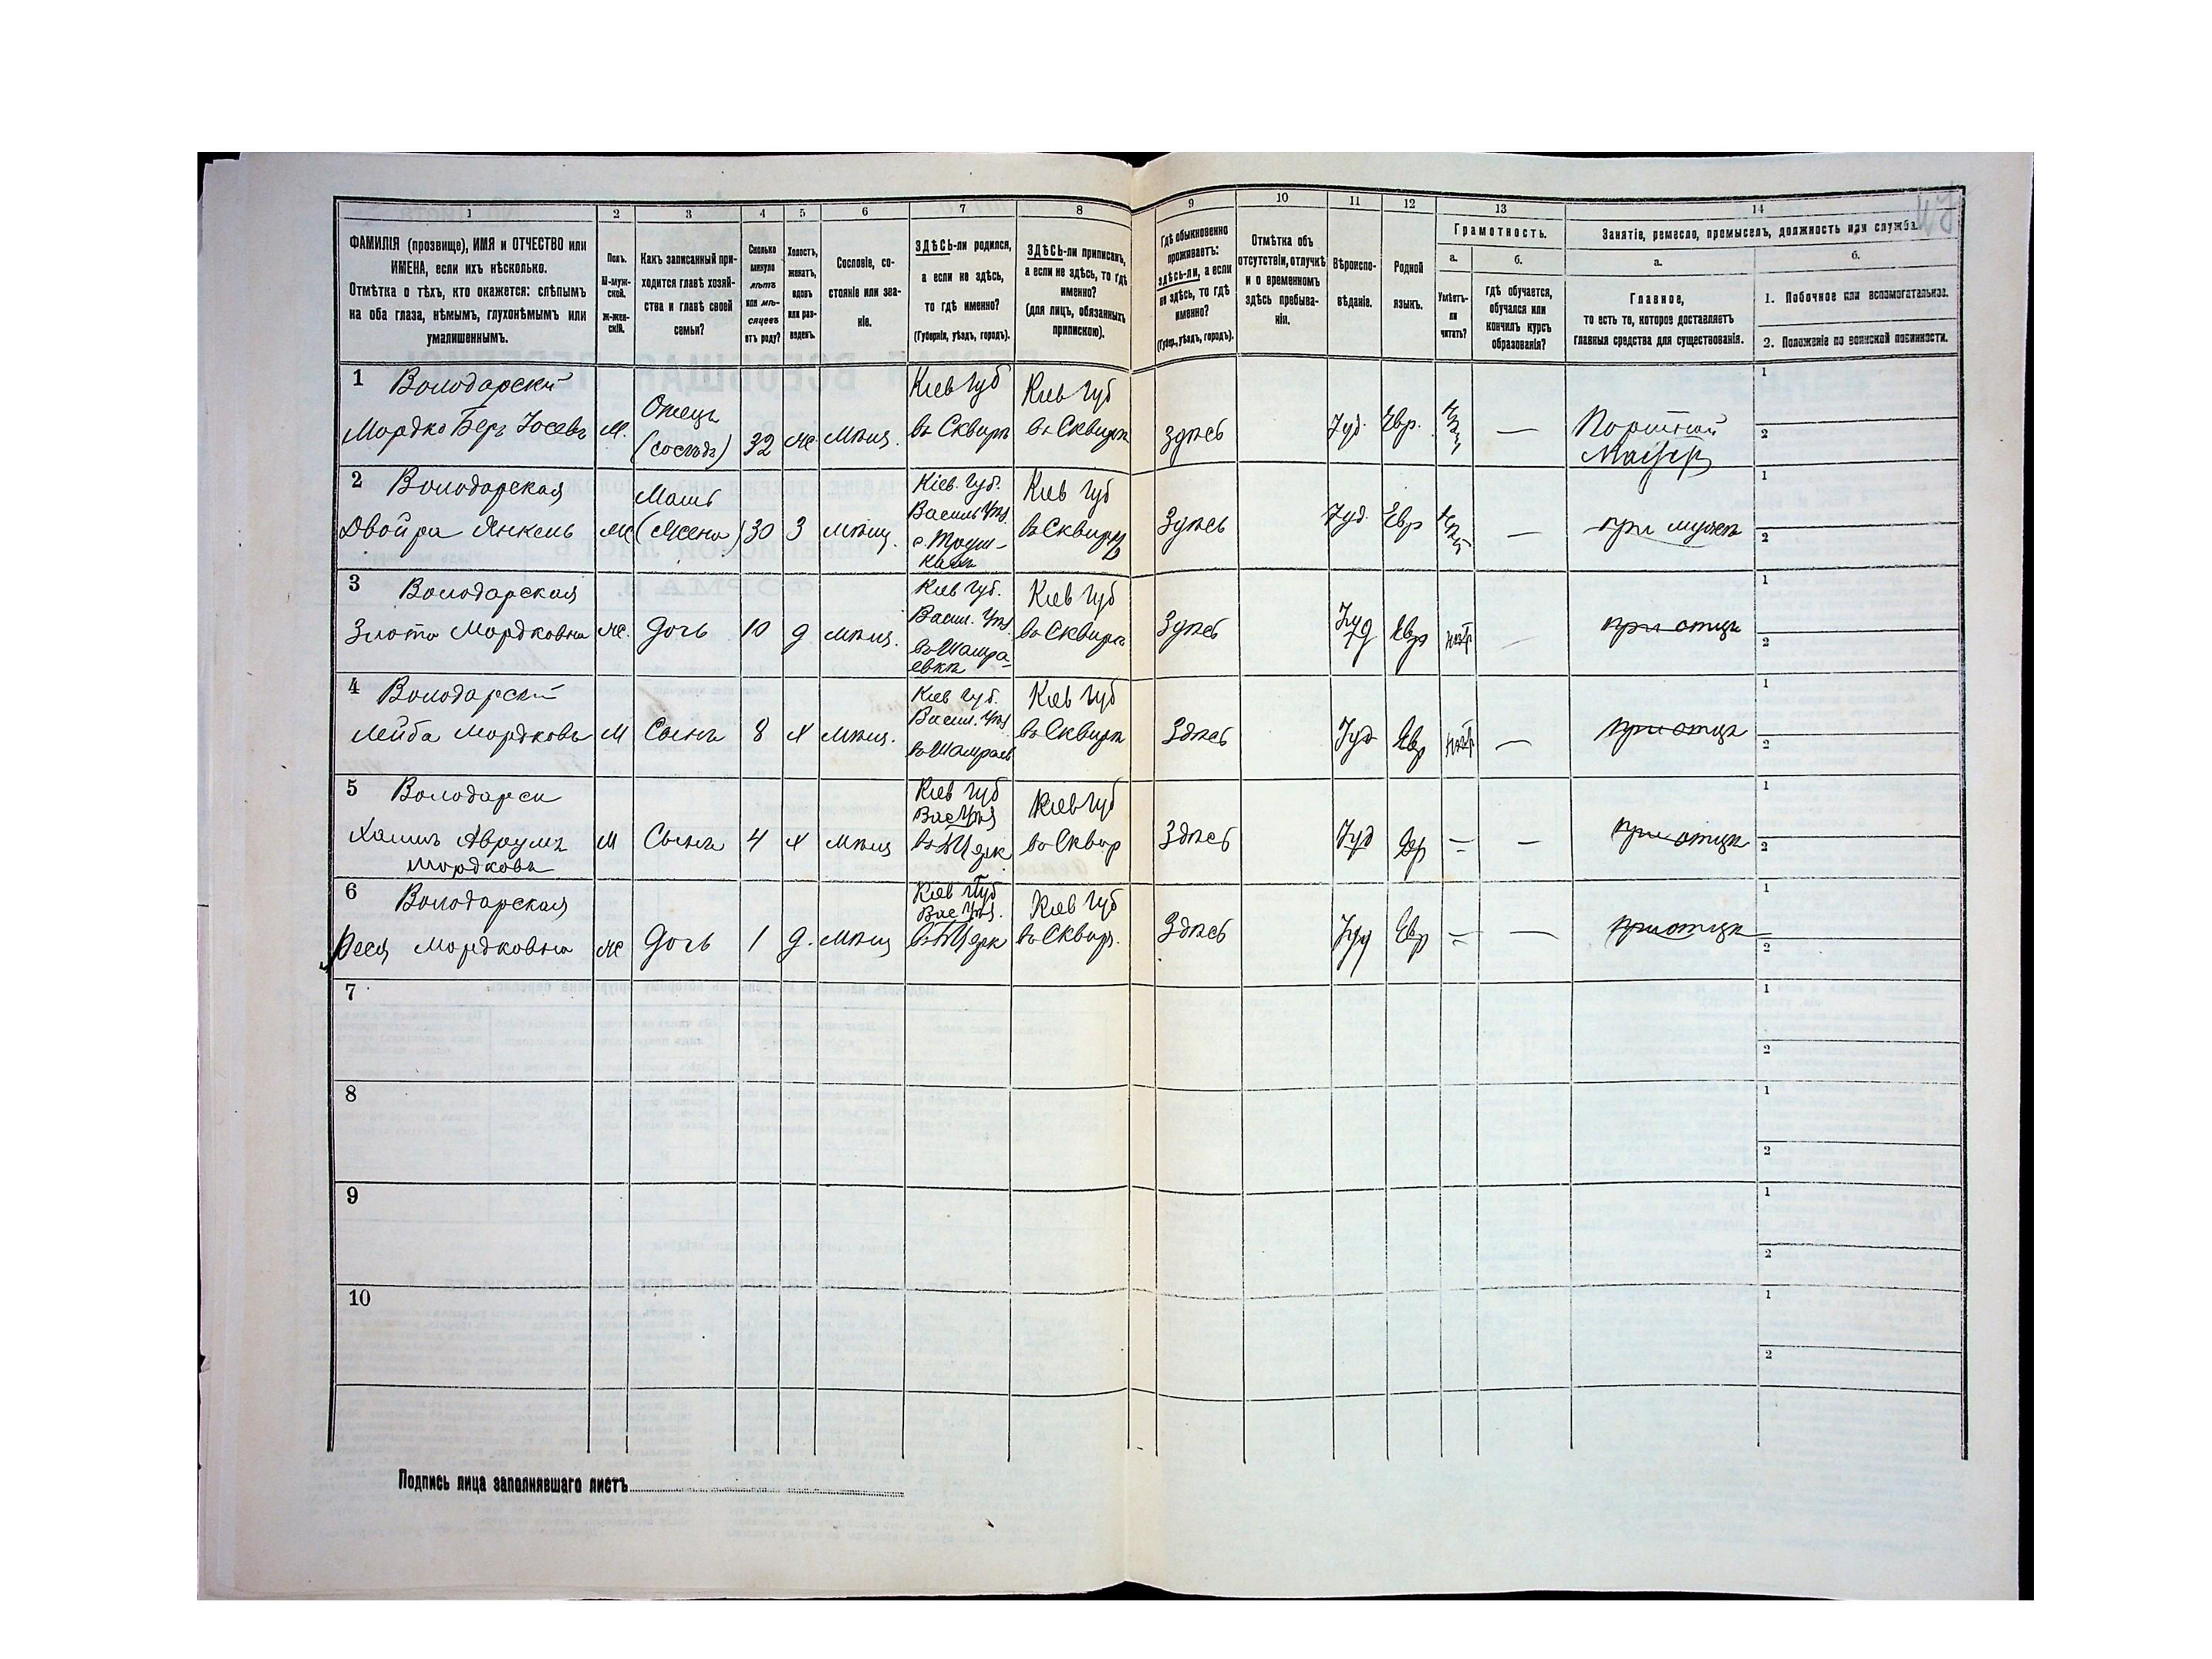 1 2 3 4 5 6 7 8 9 10 11 12 13 14
ФАМИЛІЯ (прозвище), ИМЯ и ОТЧЕСТВО или
ИМЕНА, если ихъ нѣсколько.
Отмѣтка о тѣхъ, кто окажется: слѣпымъ
на оба глаза, нѣмымъ, глухонѣмымъ или
умалишеннымъ.
Полъ.
М-муж-
ской.
ж-жен-
скій.
Какъ записанный при-
ходится главѣ хозяй-
ства и главѣ своей
семьи?
Сколько
минуло
лѣтъ
или мѣ-
сяцевъ
отъ роду?
Холостъ,
женатъ,
вдовъ
или раз-
веденъ.
Сословіе, со-
стояніе или зва-
ніе.
ЗДѢСЬ-ли родился,
а если не здѣсь,
то гдѣ именно?
(Губернія, уѣздъ, городъ).
ЗДѢСЬ-ли приписанъ,
а если не здѣсь, то гдѣ
именно?
(для лицъ, обязанныхъ
припискою).
Гдѣ обыкновенно
проживаетъ:
здѣсь-ли, а если
не здѣсь, то гдѣ
именно?
(Губер., уѣздъ, городъ).
Отмѣтка объ
отсутствіи, отлучкѣ
и о временномъ
здѣсь пребыва-
ніи.
Вѣроиспо-
вѣданіе.
Родной
языкъ.
Грамотность.
а.
Умѣетъ-
ли
читать?
б.
гдѣ обучается,
обучался или
кончилъ курсъ
образованія?
Занятіе, ремесло, промыселъ, должность или служба.
а.
Главное,
то есть то, которое доставляетъ
главныя средства для существованія.
б.
1. Побочное или вспомогательное.
2. Положеніе по воинской повинности.
1 Володарскій Кіев Губ Кіев Губ 1
Отецъ
Мордко Беръ Іосевъ М. (сосѣдъ) 32 Ж Мѣщ. въ Сквирѣ въ Сквирѣ здѣсь Іуд. Евр. — Портной 2
Майстръ
2 Володарская Мать Кіев. Губ. Кіев Губ 1
Васильк Уѣз.
Двойра Янкель Ж (Жена) 30 З Мѣщ. въ Сквирѣ Здѣсь Іуд. Евр — при мужѣ 2
3 Володарская Кіев Губ. Кіев Губ 1
Васил. Уѣз
Злота Мордковна Ж. Дочь 10 д Мѣщ. въ Шамра- въ Сквирѣ Здѣсь Іуд Евр — при отцѣ 2
евкѣ
4 Володарскій Кіев Губ. Кіев Губ 1
Васил. Уѣз
Лейба Мордковъ М Сынъ 8 х Мѣщ. въ Шамраев въ Сквирѣ Здѣсь Іуд Евр — при отцѣ 2
5 Володарск Кіев Губ Кіев Губ 1
Вас Уѣз
Хаимъ Аврумъ М Сынъ 4 х Мѣщ въ БЦерк въ Сквир Здѣсь Іуд Евр = — при отцѣ 2
Мордковъ
6 Володарская Кіев Губ Кіев Губ 1
Вас Уѣз.
Рися Мордковна Ж Дочь 1 д. Мѣщ въ БЦерк въ Сквир. Здѣсь Іуд Евр = — при отцѣ 2
7 1
2
8 1
2
9 1
2
10 1
2
Подпись лица заполнявшаго листъ